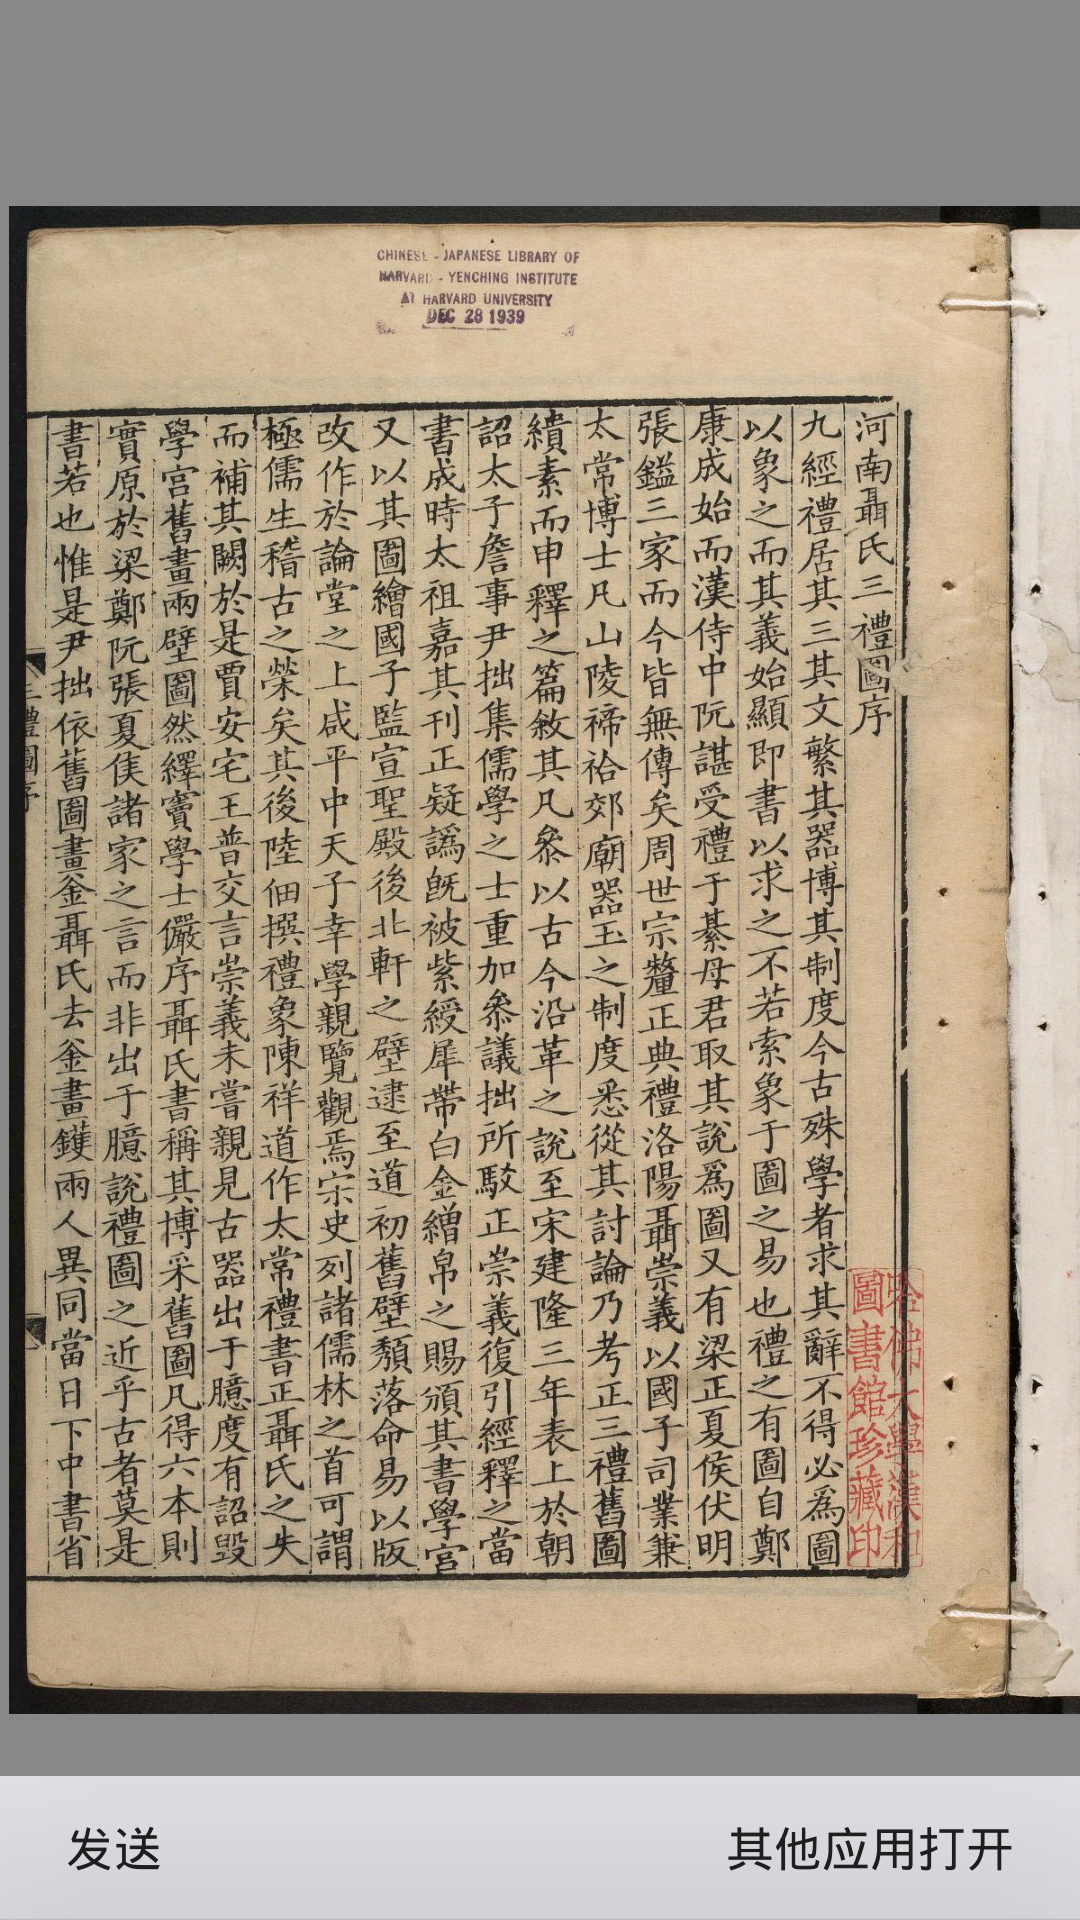 CHINESE - JAPANESE LIBRARY OF
HARVARD - YENCHING INSTITUTE
AT HARVARD UNIVERSITY
DEC 28 1939
河南聶氏三禮圖序
九經禮居其三其文繁其器博其制度今古殊學者求其辭不得必為圖
以象之而其義始顯即書以求之不若索象于圖之易也禮之有圖自鄭
康成始而漢侍中阮諶受禮于綦母君取其說為圖又有梁正夏侯伏明
張鎰三家而今皆無傳矣周世宗釐正典禮洛陽聶崇義以國子司業兼
太常博士凡山陵禘祫郊廟器玉之制度悉從其討論乃考正三禮舊圖
繢素而申釋之篇敘其凡叅以古今沿革之說至宋建隆三年表上於朝
詔太子詹事尹拙集儒學之士重加叅議拙所駮正崇義復引經釋之當
書成時太祖嘉其刊正疑譌旣被紫綬犀帶白金繒帛之賜頒其書學宮
又以其圖繪國子監宣聖殿後北軒之壁逮至道初舊壁頽落命易以版
改作於論堂之上咸平中天子幸學親覽觀焉宋史列諸儒林之首可謂
極儒生稽古之榮矣其後陸佃撰禮象陳祥道作太常禮書正聶氏之失
而補其闕於是賈安宅王普交言崇義未嘗親見古器出于臆度有詔毀
學宮舊畫兩壁圖然繹竇學士儼序聶氏書稱其博采舊圖凡得六本則
實原於梁鄭阮張夏侯諸家之言而非出于臆說禮圖之近乎古者莫是
書若也惟是尹拙依舊圖畫釜聶氏去釜畫鑊兩人異同當日下中書省
三禮圖序
哈佛大學漢和
圖書館珍藏印
发送
其他应用打开